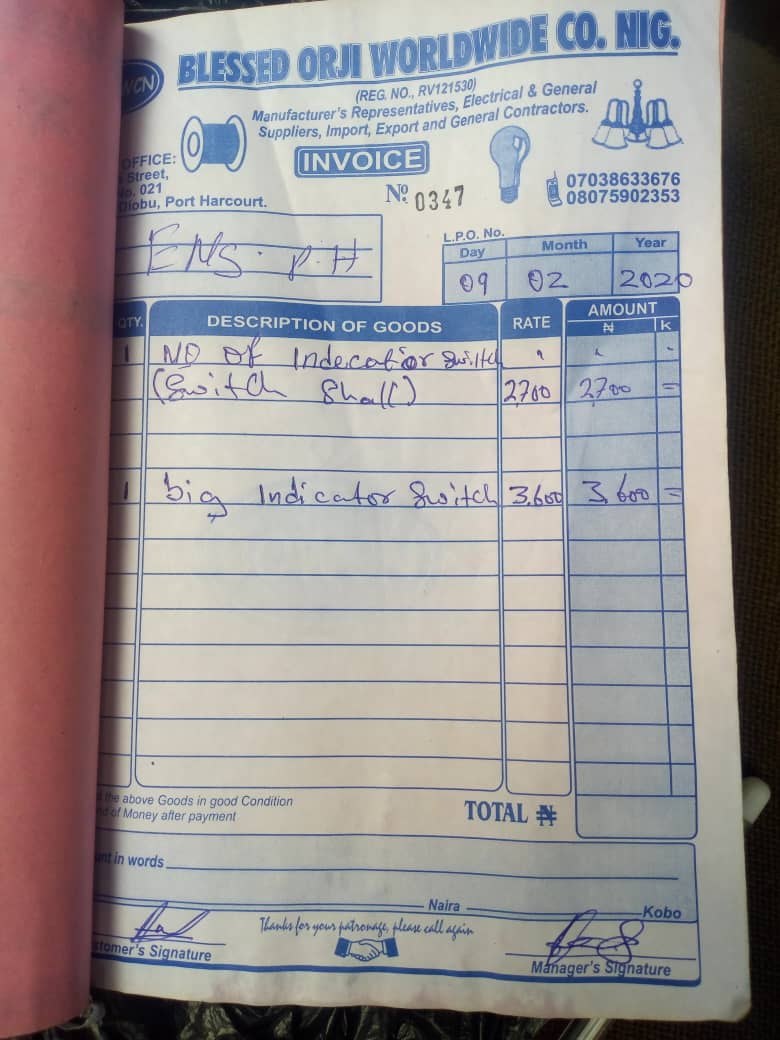 WCN
BLESSED ORJI WORLDWIDE CO. NIG.
(REG. NO., RV121530)
Manufacturer's Representatives, Electrical & General
Suppliers, Import, Export and General Contractors.
OFFICE:
Street,
No. 021
Diobu, Port Harcourt.
INVOICE
Nº 0347
07038633676
08075902353
EMS. P.H
L.P.O. No.
Day Month Year
09 02 2020
QTY. DESCRIPTION OF GOODS RATE AMOUNT
₦ k
1 NO Of Indecatior Switch " " -
(Switch Shall) 2,700 2,700 =
1 big Indicator Switch 3,600 3,600 =
the above Goods in good Condition
of Money after payment
TOTAL ₦
in words
Naira
Kobo
Thanks for your patronage, please call again
stomer's Signature
Manager's Signature